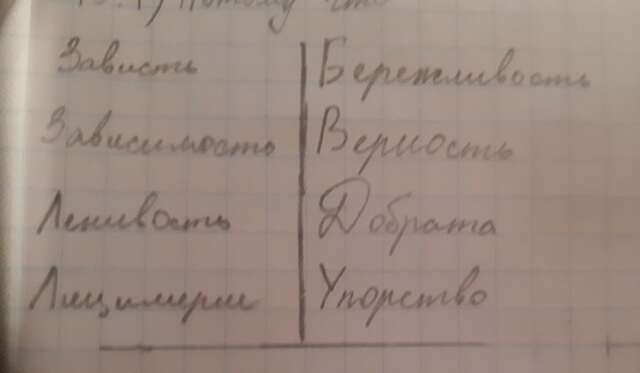 Потому что
Зависть Бережливость
Зависимость Верность
Ленивость Добрата
Лицимерие Упорство